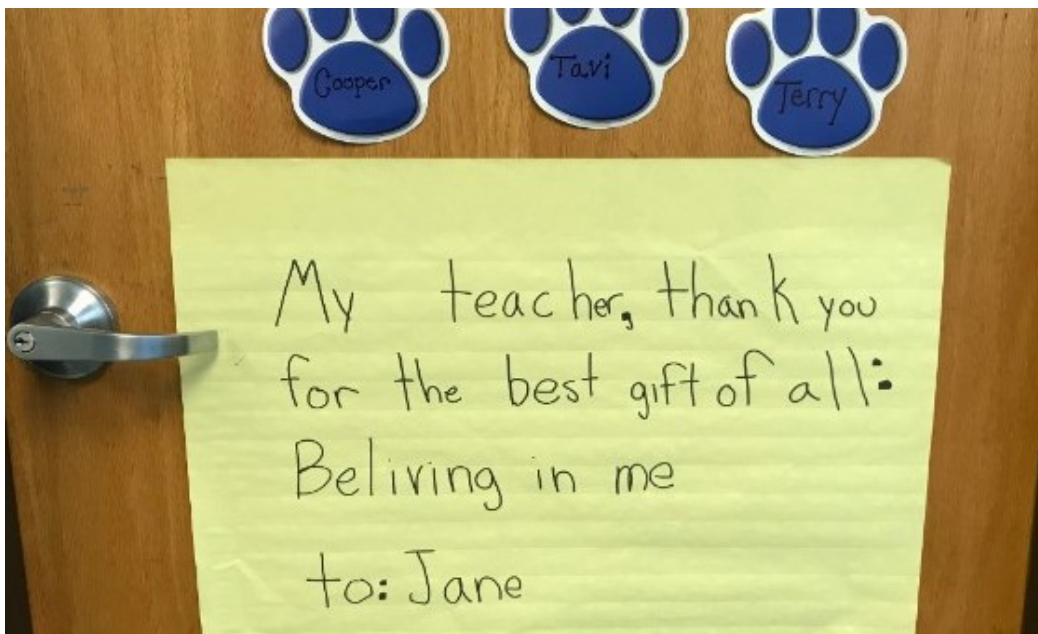 Cooper
Tavi
Terry
My teacher, thank you
for the best gift of all:
Beliving in me
to: Jane